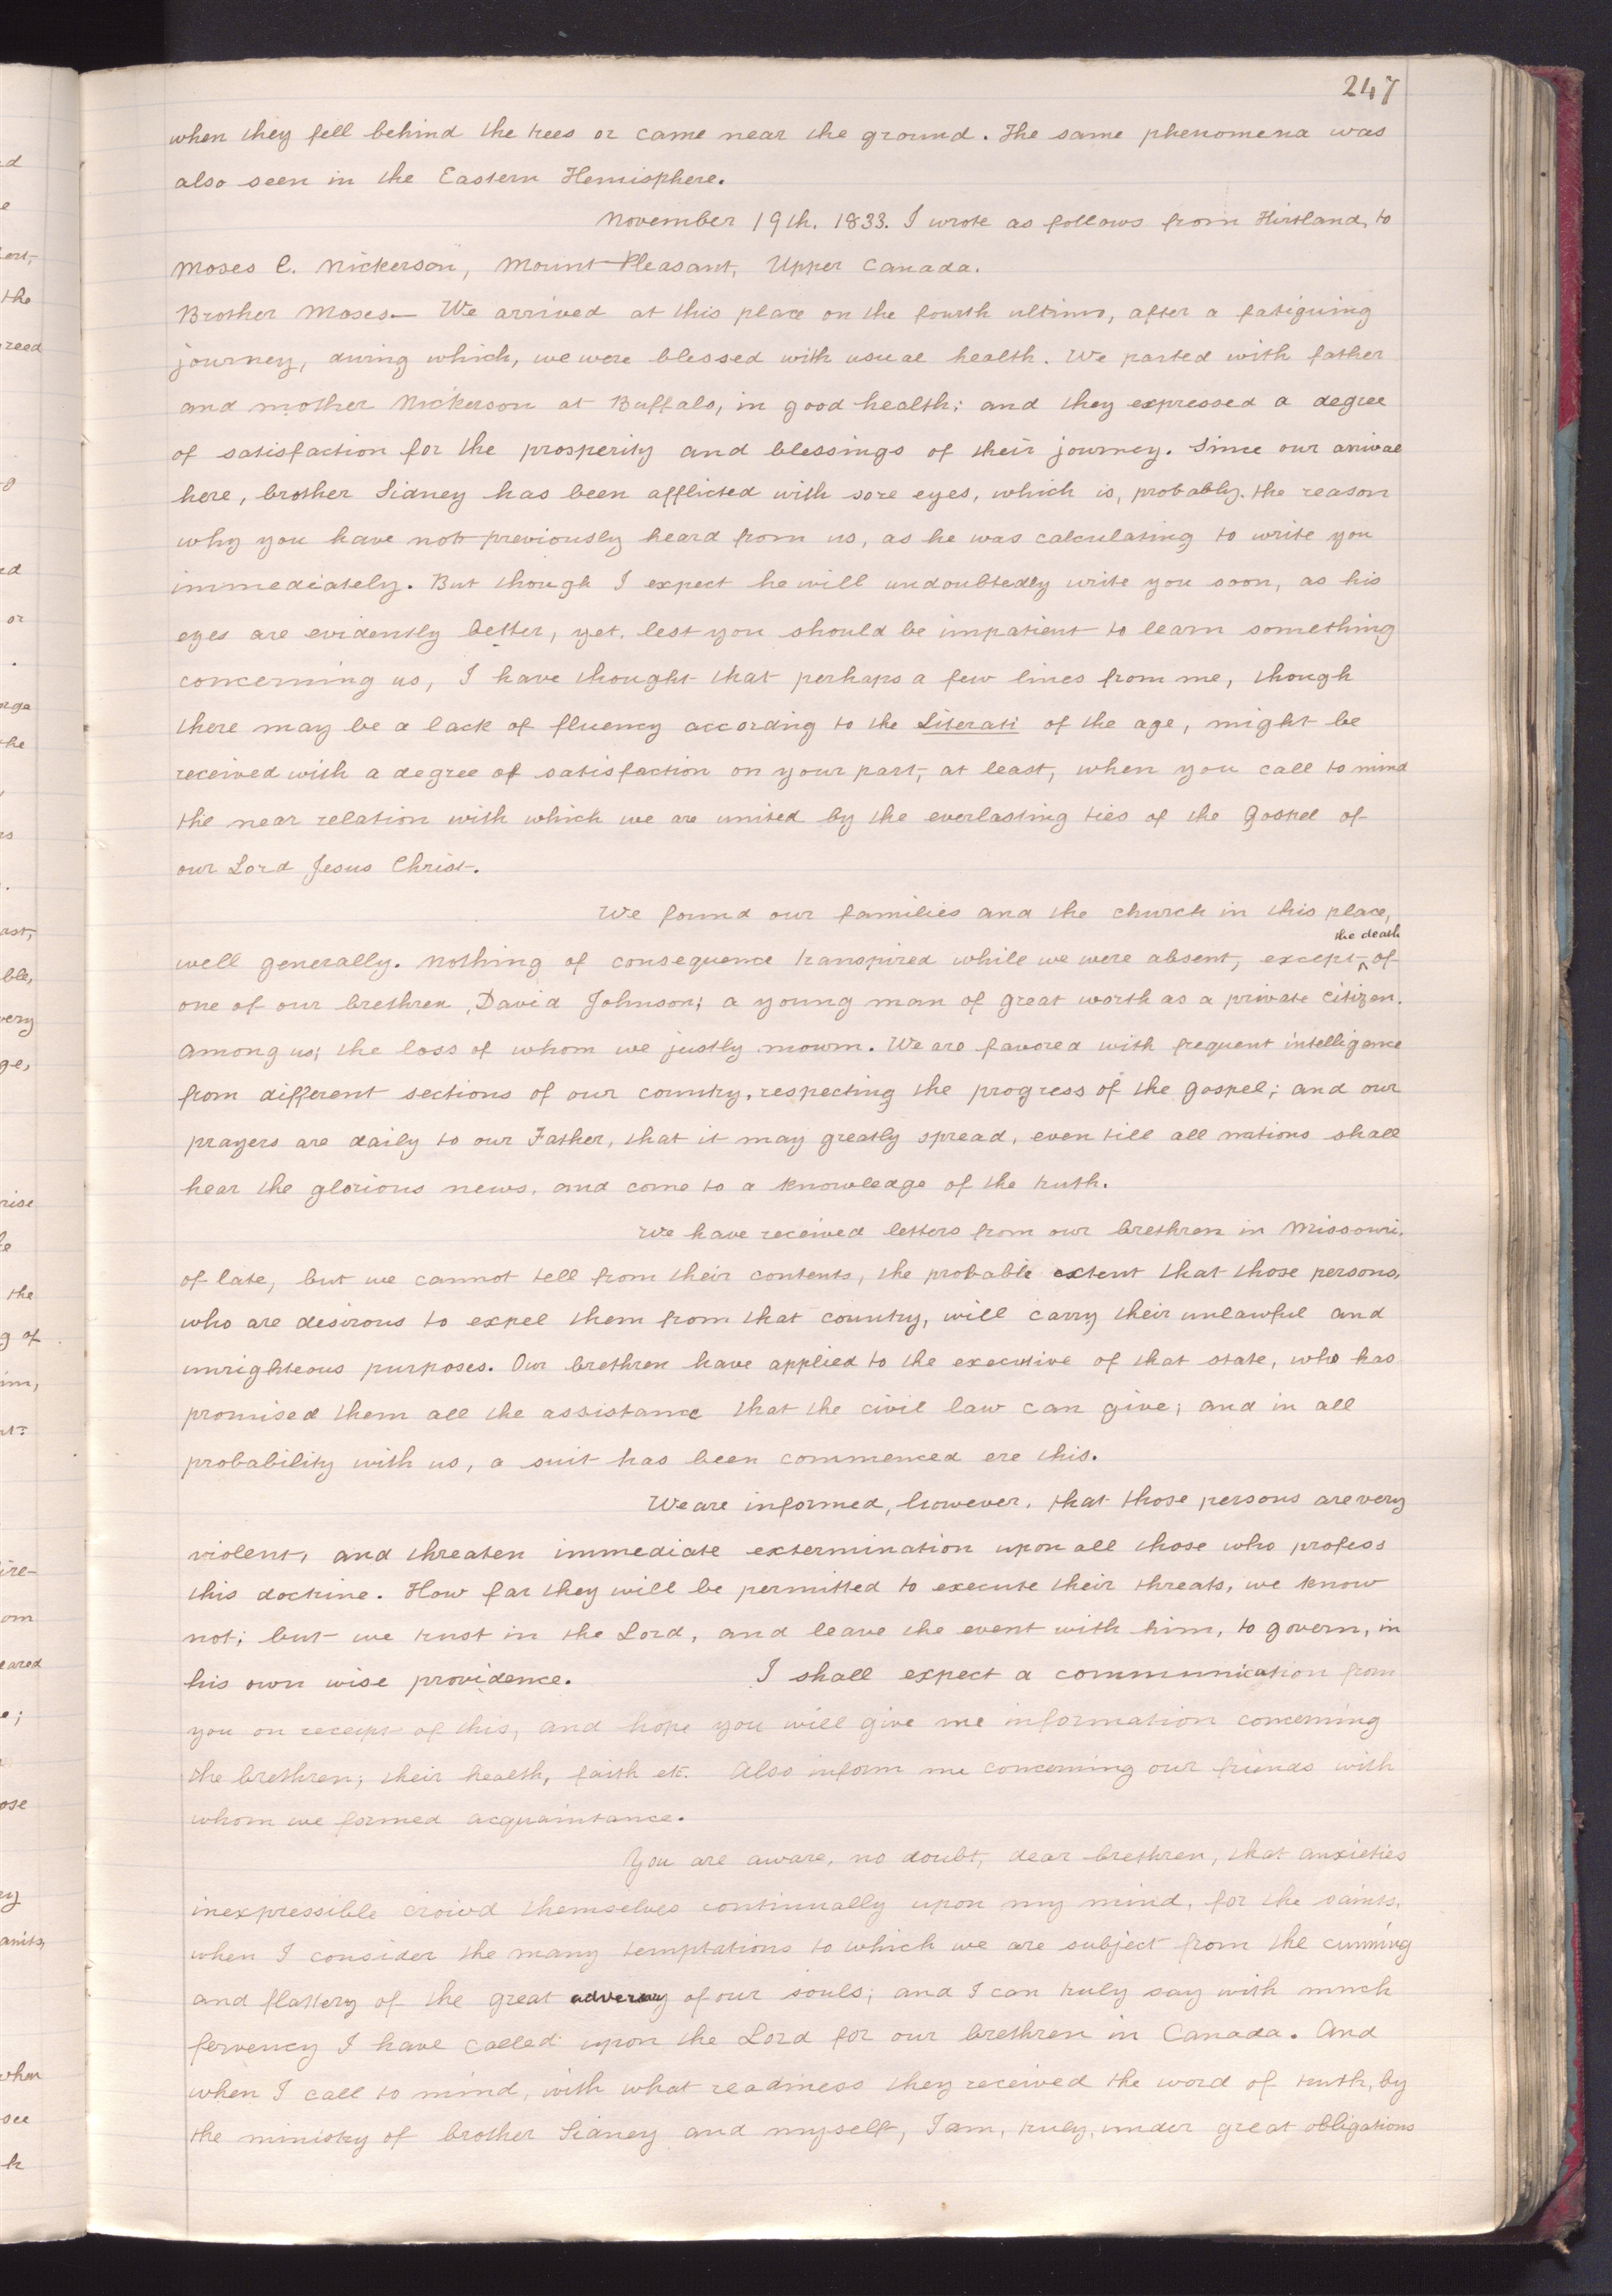 247
when they fell behind the trees or came near the ground. The same phenomena was
also seen in the Eastern Hemisphere.
November 19th. 1833. I wrote as follows from Kirtland, to
Moses C. Nickerson, Mount Pleasant, Upper Canada.
Brother Moses— We arrived at this place on the fourth ultimo, after a fatiguing
journey, during which, we were blessed with usual health. We parted with father
and mother Nickerson at Buffalo, in good health; and they expressed a degree
of satisfaction for the prosperity and blessings of their journey. Since our arrival
here, brother Sidney has been afflicted with sore eyes, which is, probably, the reason
why you have not previously heard from us, as he was calculating to write you
immediately. But though I expect he will undoubtedly write you soon, as his
eyes are evidently better, yet, lest you should be impatient to learn something
concerning us, I have thought that perhaps a few lines from me, though
there may be a lack of fluency according to the Literati of the age, might be
received with a degree of satisfaction on your part, at least, when you call to mind
the near relation with which we are united by the everlasting ties of the Gospel of
our Lord Jesus Christ.
We found our families and the church in this place,
well generally. Nothing of consequence transpired while we were absent, except ^the death of
one of our brethren, David Johnson; a young man of great worth as a private citizen.
among us; the loss of whom we justly mourn. We are favored with frequent intelligence
from different sections of our country, respecting the progress of the gospel; and our
prayers are daily to our Father, that it may greatly spread, even till all nations shall
hear the glorious news, and come to a knowledge of the truth.
We have received letters from our brethren in Missouri,
of late, but we cannot tell from their contents, the probable extent that those persons,
who are desirous to expel them from that country, will carry their unlawful and
unrighteous purposes. Our brethren have applied to the executive of that state, who has
promised them all the assistance that the civil law can give; and in all
probability with us, a suit has been commenced ere this.
We are informed, however, that those persons are very
violent, and threaten immediate extermination upon all those who profess
this doctrine. How far they will be permitted to execute their threats, we know
not; but we trust in the Lord, and leave the event with him, to govern, in
his own wise providence. I shall expect a communication from
you on receipt of this, and hope you will give me information concerning
the brethren; their health, faith etc. Also inform me concerning our friends with
whom we formed acquaintance.
You are aware, no doubt, dear brethren, that anxieties
inexpressible crowd themselves continually upon my mind, for the saints,
when I consider the many temptations to which we are subject from the cunning
and flattery of the great adversary of our souls; and I can truly say with much
fervency I have called upon the Lord for our brethren in Canada. And
when I call to mind, with what readiness they received the word of truth, by
the ministry of brother Sidney and myself, I am, truly, under great obligations